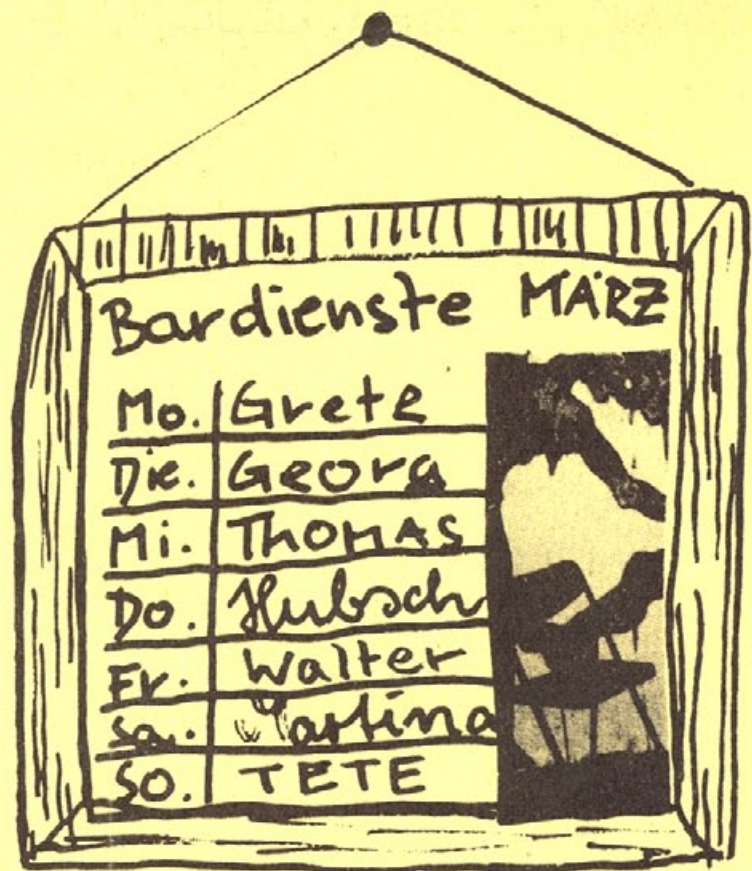 Bardienste MÄRZ
Mo. Grete
Die. Georg
Mi. THOMAS
Do. Hubsch
Fr. Walter
Sa. Martina
So. TETE